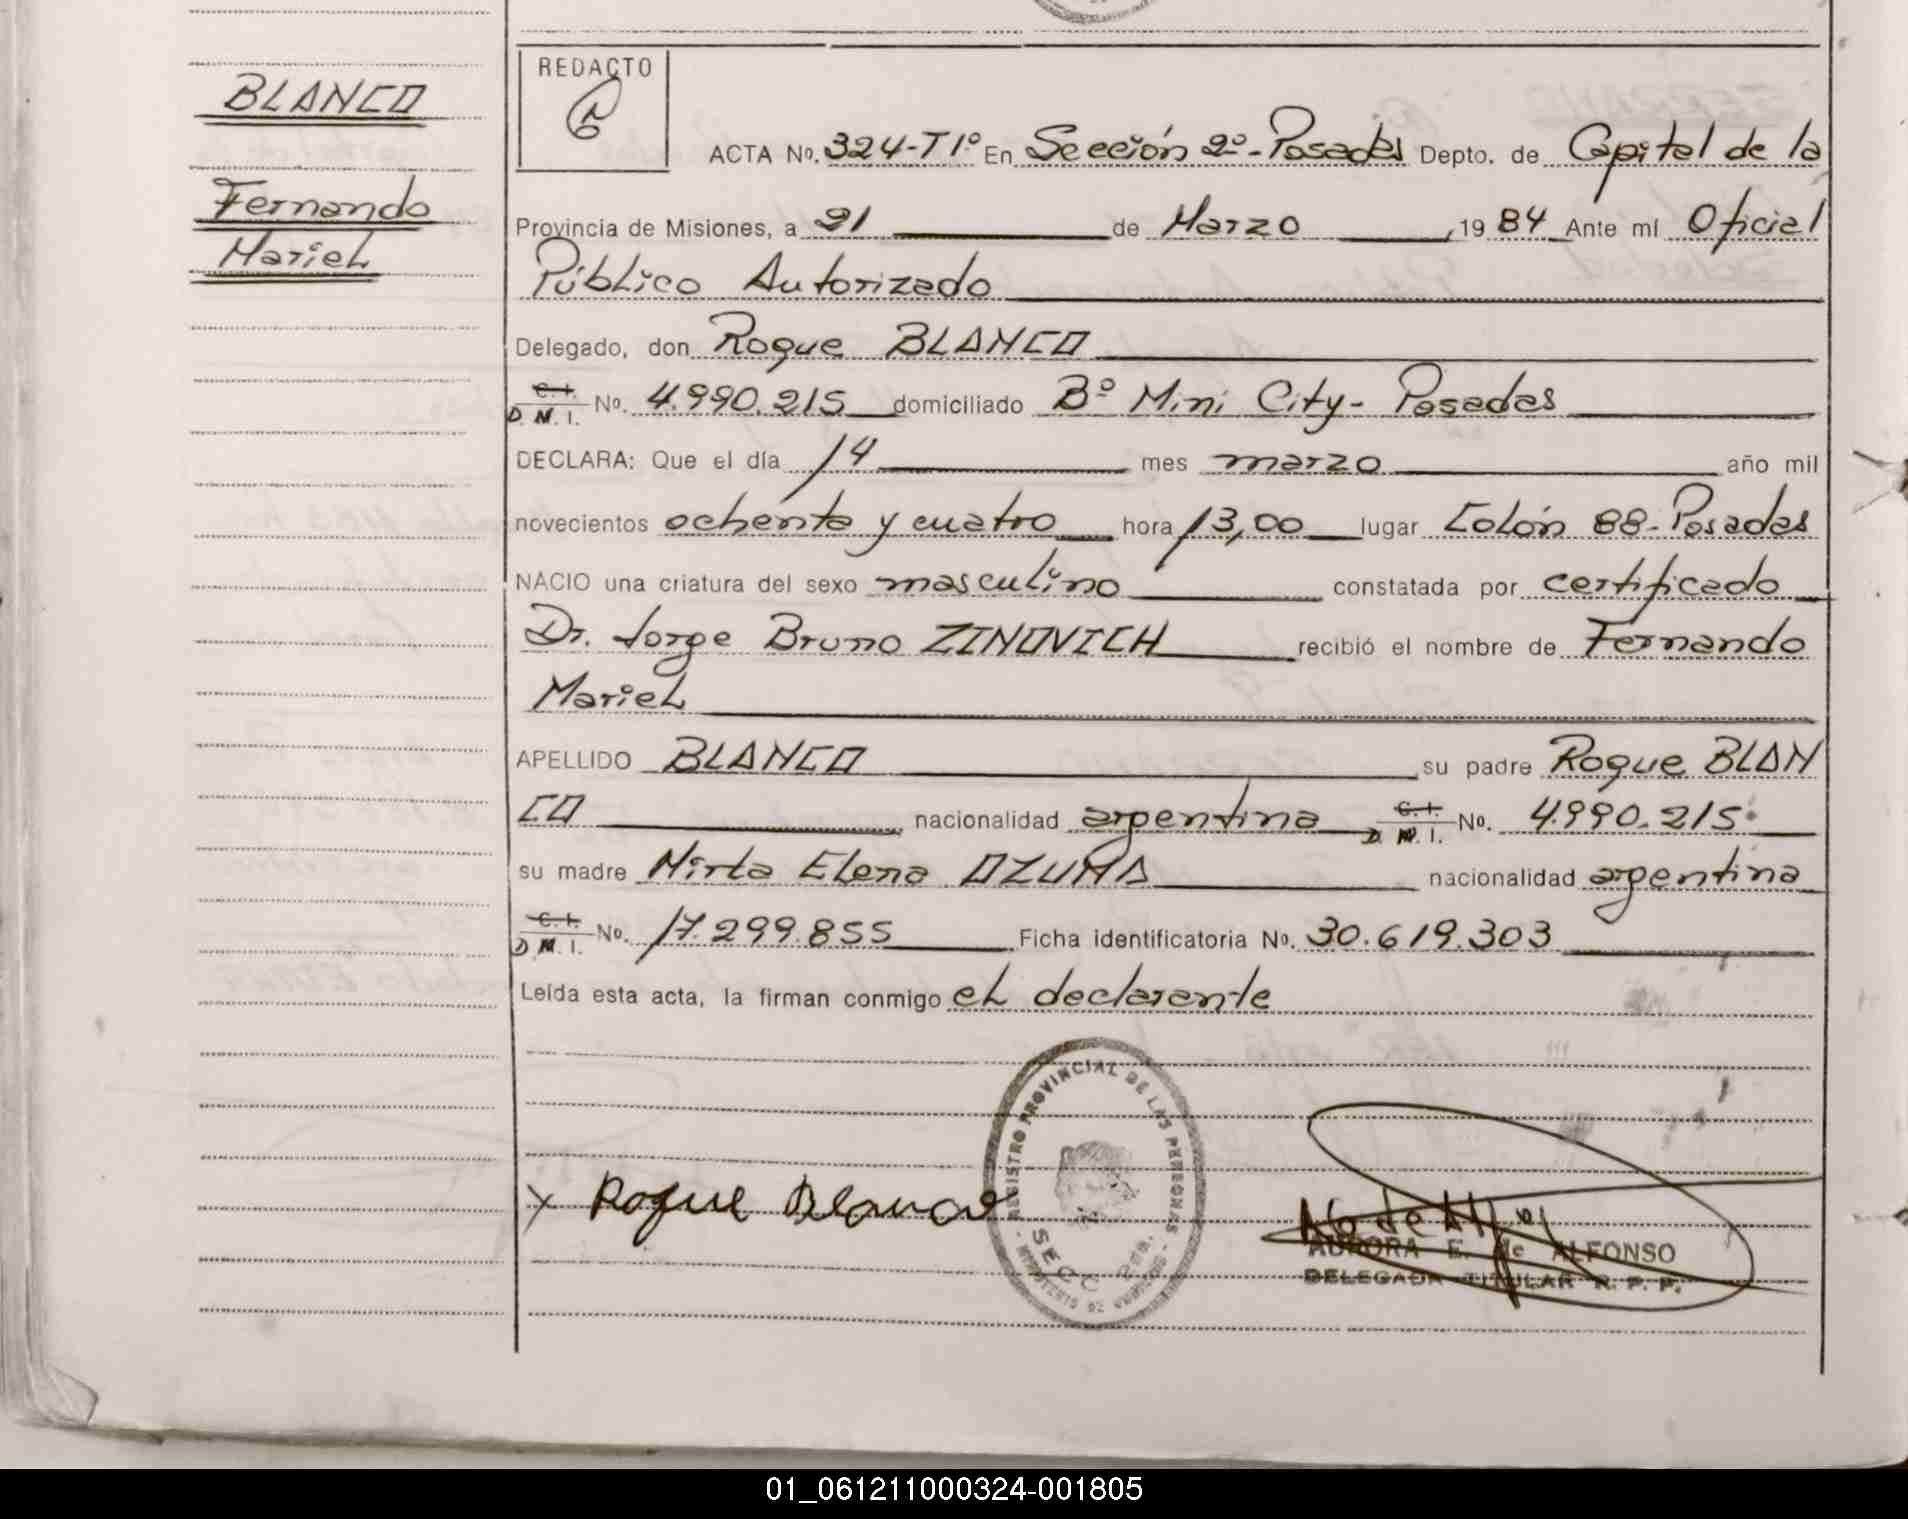 BLANCO
Fernando
Mariel
REDACTO
ACTA No. 324-T1º En Sección 2º-Posadas Depto. de Capital de la
Provincia de Misiones, a 21 de Marzo , 19 84 Ante mí Oficial
Público Autorizado
Delegado, don Roque BLANCO
C.I.
D.N.I. No. 4.990.215 domiciliado Bº Mini City- Posadas
DECLARA: Que el día 14 mes marzo año mil
novecientos ochenta y cuatro hora 13,00 lugar Colón 88-Posadas
NACIO una criatura del sexo masculino constatada por certificado
Dr. Jorge Bruno ZINOVICH recibió el nombre de Fernando
Mariel
APELLIDO BLANCO su padre Roque BLAN
CO nacionalidad argentina C.I. D.N.I. No. 4.990.215
su madre Mirta Elena OZUNA nacionalidad argentina
C.I.
D.N.I. No. 17.299.855 Ficha identificatoria No. 30.619.303
Leída esta acta, la firman conmigo el declarante
REGISTRO PROVINCIAL DE LAS PERSONAS
SECC 2da.
X Roque Blanco
AURORA E. de ALFONSO
DELEGADA TITULAR R. P. P.
01_061211000324-001805